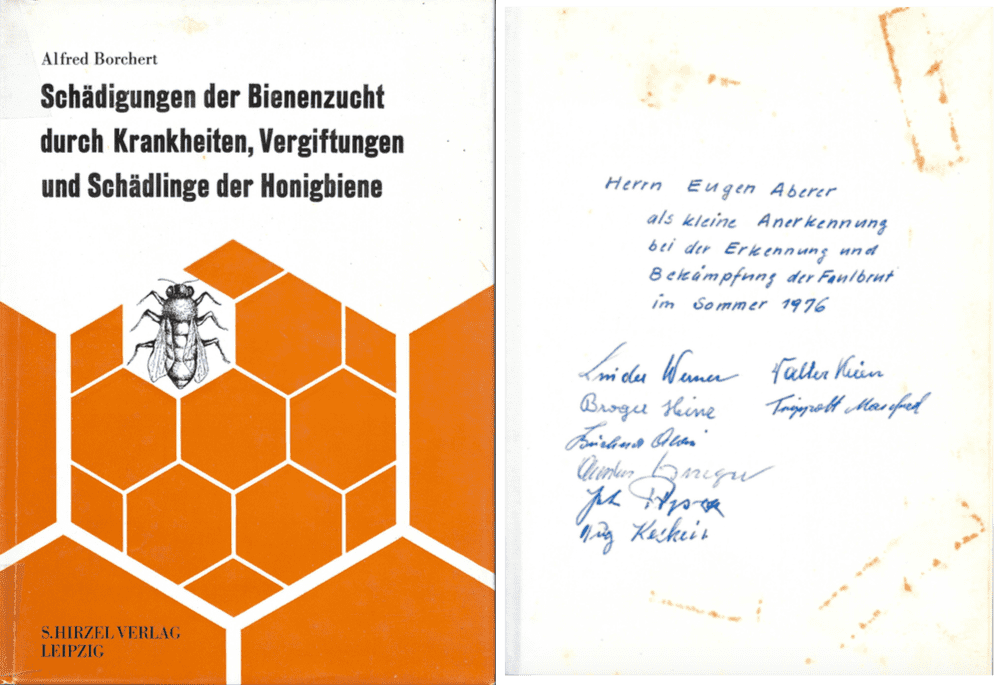 Alfred Borchert
Schädigungen der Bienenzucht
durch Krankheiten, Vergiftungen
und Schädlinge der Honigbiene
S. HIRZEL VERLAG
LEIPZIG
Herrn Eugen Aberer
als kleine Anerkennung
bei der Erkennung und
Bekämpfung der Faulbrut
im Sommer 1976
Linder Werner
Walter
Broger Heine
Manfred